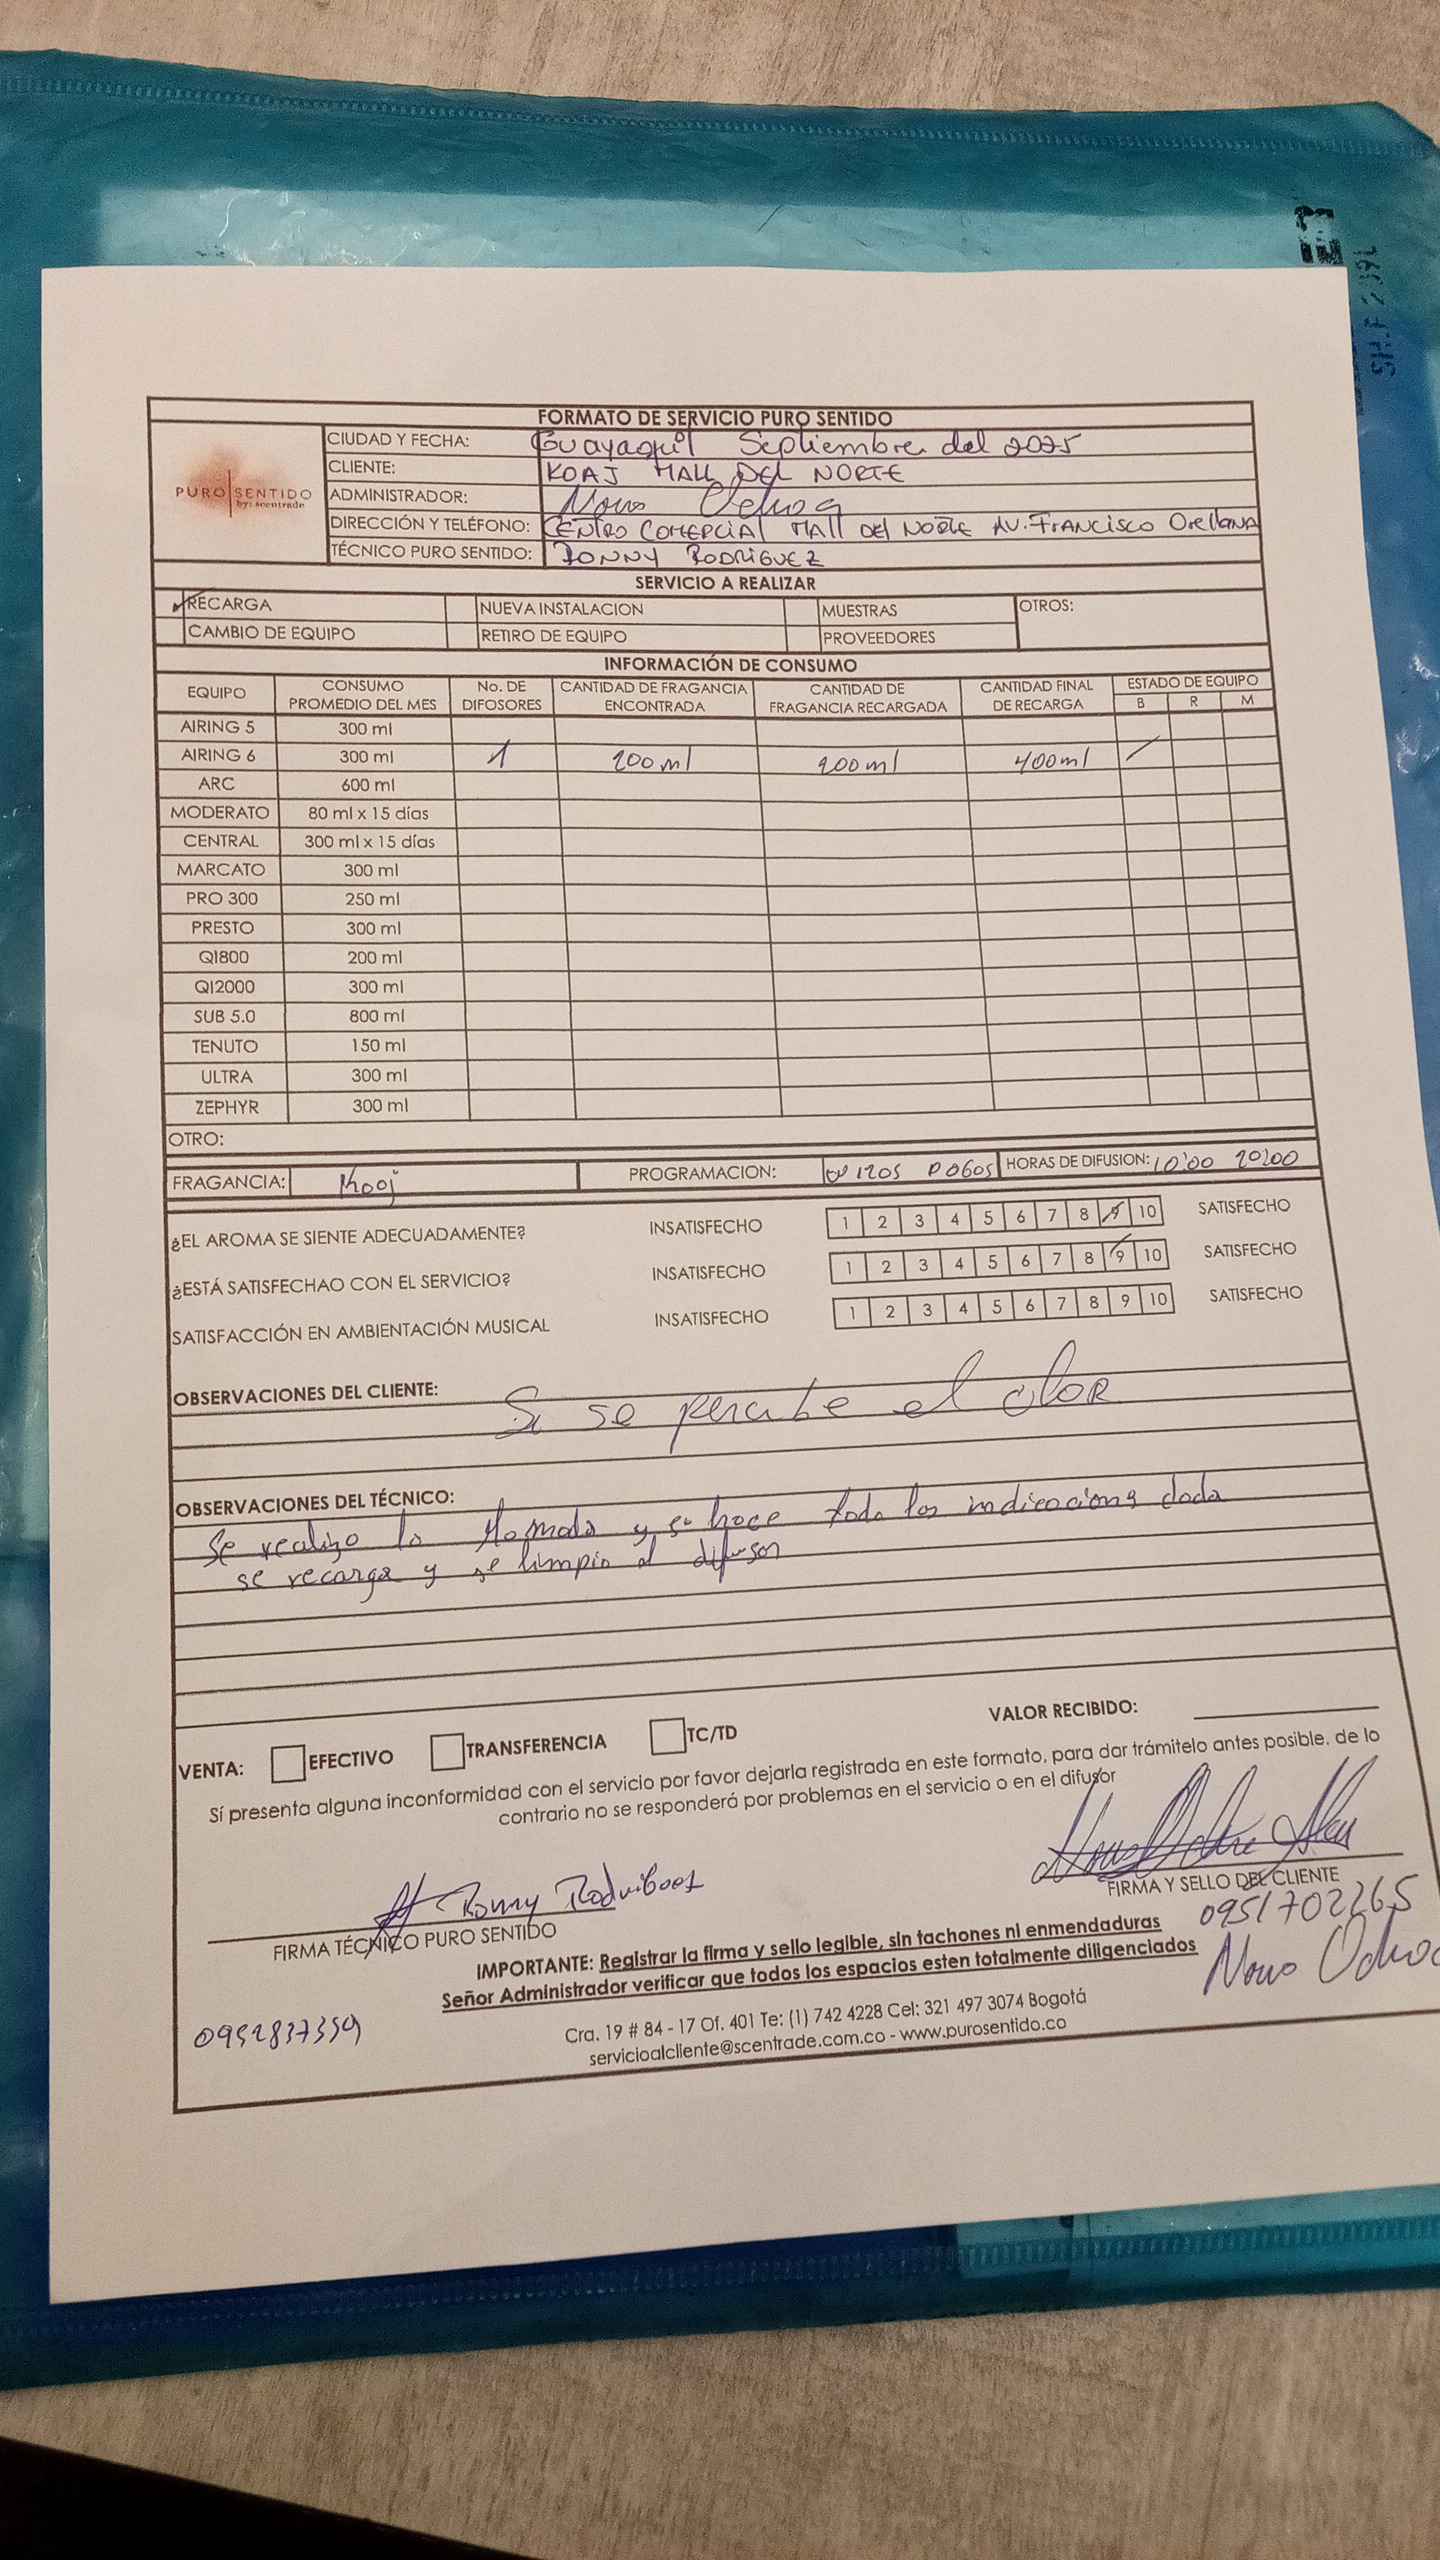 FORMATO DE SERVICIO PURO SENTIDO
PURO SENTIDO
by: scentrade
CIUDAD Y FECHA: Guayaquil Septiembre del 2025
CLIENTE: KOAJ MALL DEL NORTE
ADMINISTRADOR: Ochoa
DIRECCIÓN Y TELÉFONO: CENTRO COMERCIAL MALL DEL NORTE AV. FRANCISCO Orellana
TÉCNICO PURO SENTIDO: RONNY RODRIGUEZ
SERVICIO A REALIZAR
RECARGA NUEVA INSTALACION MUESTRAS OTROS:
CAMBIO DE EQUIPO RETIRO DE EQUIPO PROVEEDORES
INFORMACIÓN DE CONSUMO
EQUIPO CONSUMO PROMEDIO DEL MES No. DE DIFOSORES CANTIDAD DE FRAGANCIA ENCONTRADA CANTIDAD DE FRAGANCIA RECARGADA CANTIDAD FINAL DE RECARGA ESTADO DE EQUIPO B R M
AIRING 5 300 ml
AIRING 6 300 ml 1 200ml 200ml 400ml
ARC 600 ml
MODERATO 80 ml x 15 días
CENTRAL 300 ml x 15 días
MARCATO 300 ml
PRO 300 250 ml
PRESTO 300 ml
QI800 200 ml
QI2000 300 ml
SUB 5.0 800 ml
TENUTO 150 ml
ULTRA 300 ml
ZEPHYR 300 ml
OTRO:
FRAGANCIA: Kooj PROGRAMACION: 120s 060s HORAS DE DIFUSION: 10:00 20:00
¿EL AROMA SE SIENTE ADECUADAMENTE? INSATISFECHO 1 2 3 4 5 6 7 8 9 10 SATISFECHO
¿ESTÁ SATISFECHAO CON EL SERVICIO? INSATISFECHO 1 2 3 4 5 6 7 8 9 10 SATISFECHO
SATISFACCIÓN EN AMBIENTACIÓN MUSICAL INSATISFECHO 1 2 3 4 5 6 7 8 9 10 SATISFECHO
OBSERVACIONES DEL CLIENTE: Si se percibe el olor
OBSERVACIONES DEL TÉCNICO:
Se realizo la llamada y se hace toda las indicaciones dada
se recarga y se limpia el difusor
VALOR RECIBIDO:
VENTA: EFECTIVO TRANSFERENCIA TC/TD
Sí presenta alguna inconformidad con el servicio por favor dejarla registrada en este formato, para dar trámitelo antes posible, de lo
contrario no se responderá por problemas en el servicio o en el difusor
Ronny Rodriguez
FIRMA TÉCNICO PURO SENTIDO
FIRMA Y SELLO DEL CLIENTE
0951702265
Ochoa
IMPORTANTE: Registrar la firma y sello legible, sin tachones ni enmendaduras
Señor Administrador verificar que todos los espacios esten totalmente diligenciados
0952837359
Cra. 19 # 84 - 17 Of. 401 Te: (1) 742 4228 Cel: 321 497 3074 Bogotá
servicioalcliente@scentrade.com.co - www.purosentido.co